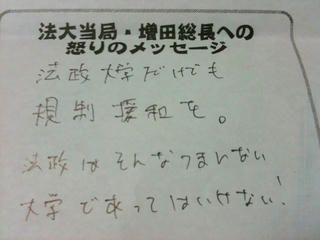 法大当局・増田総長への
怒りのメッセージ
法政大学だけでも
規制緩和を。
法政はそんなつまんない
大学であってはいけない!